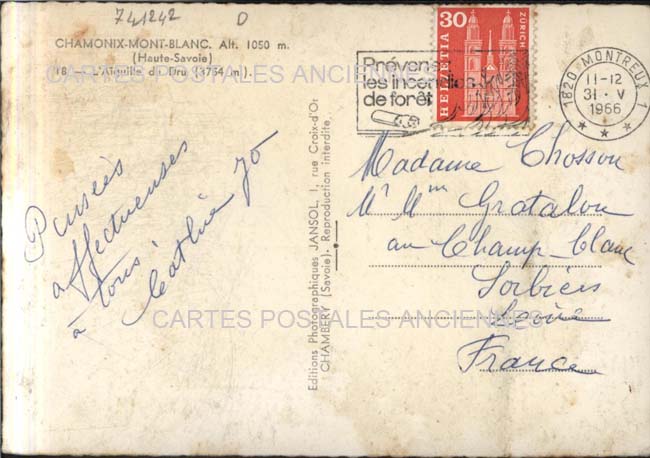 741242 D
CHAMONIX-MONT-BLANC. Alt. 1050 m.
(Haute-Savoie)
18 L'Aiguille du Dru (3754 m).
CARTES POSTALES ANCIENNES
Pensées
affectueuses
à tous
Cathie Jo
Editions Photographiques JANSOL, 1, rue Croix-d'Or
CHAMBERY (Savoie). Reproduction interdite.
30
HELVETIA
ZÜRICH
Prévenez
les incendies
de forêt
1820 MONTREUX 1
11-12
31·V
1966
Madame Chosson
Mr Mme Gratalon
au Champ-blanc
Sorbiers
Loire
France
CARTES POSTALES ANCIENNES